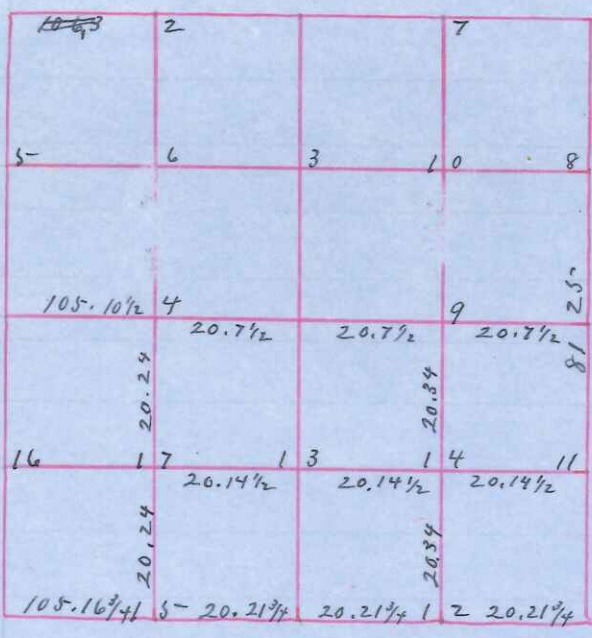 2 7
5 6 3 1 0 8
105.10½ 4 9
20.7½ 20.7½ 20.7½
20.24 20.34 81 25
16 1 7 1 3 1 4 11
20.14½ 20.14½ 20.14½
20.24 20.34
105.16¾ 1 5 20.21¾ 20.21¾ 1 2 20.21¾